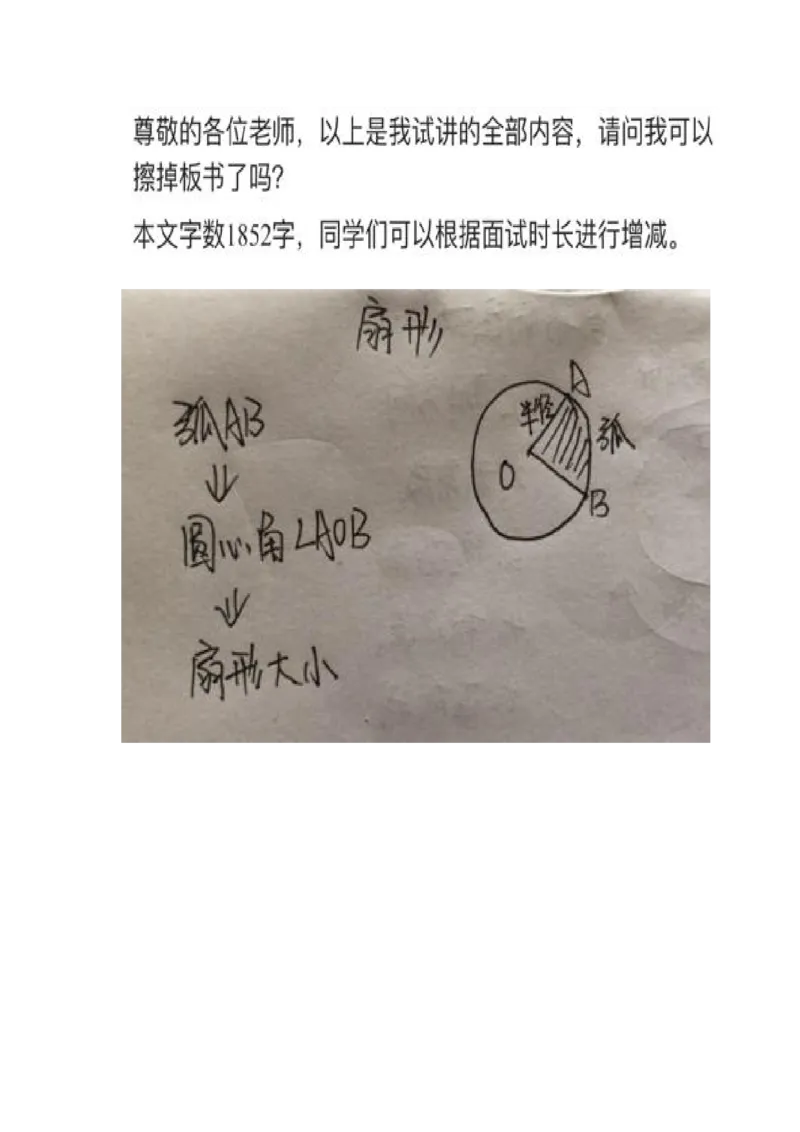 尊敬的各位老师，以上是我试讲的全部内容，请问我可以
擦掉板书了吗？
本文字数1852字，同学们可以根据面试时长进行增减。
扇形
弧AB
⇓
圆心角∠AOB
⇓
扇形大小
A
半径
弧
O
B